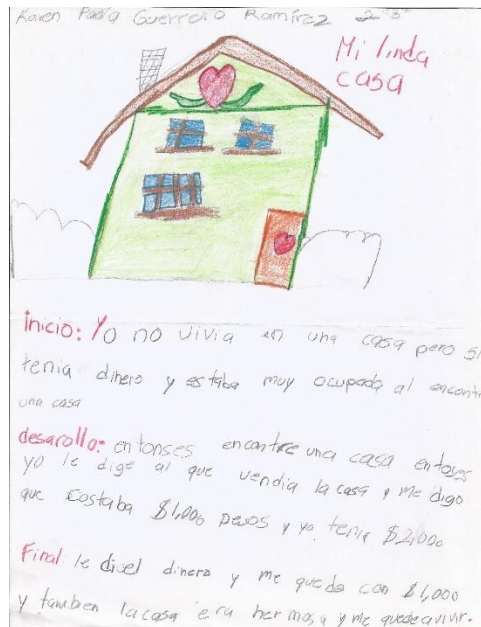 Karen Paola Guerrero Ramírez 2 "B"
Mi linda
casa
inicio: Yo no vivia en una casa pero si
tenia dinero y estaba muy ocupada al encontr
una casa
desarollo: entonses encontre una casa entoses
yo le dige al que vendia la casa y me digo
que costaba $1,000 pesos y yo tenia $2,000
Final: le di el dinero y me quede con $1,000
y tambien la casa era hermosa y me quede a vivir.